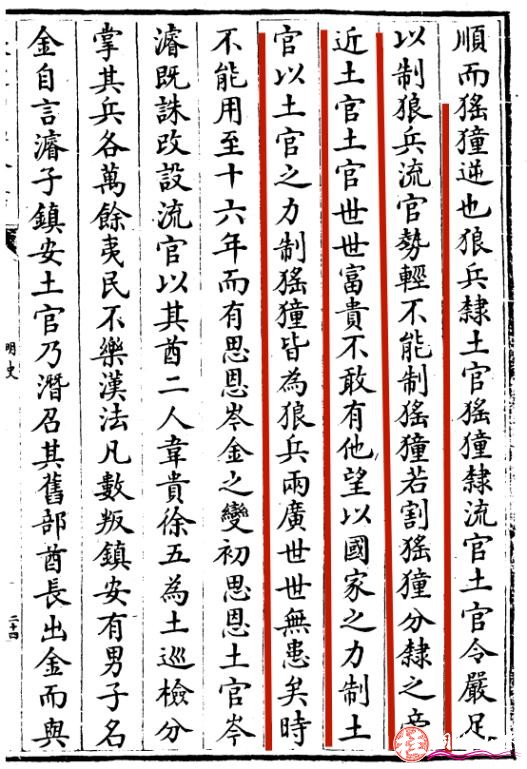 順而猺獞逆也狼兵隸土官猺獞隸流官土官令嚴足
以制狼兵流官勢輕不能制猺獞若割猺獞分隸之旁
近土官土官世世富貴不敢有他望以國家之力制土
官以土官之力制猺獞皆為狼兵兩廣世世無患矣時
不能用至十六年而有思恩岑金之變初思恩土官岑
濬既誅改設流官以其酋二人韋貴徐五為土巡檢分
掌其兵各萬餘夷民不樂漢法凡數叛鎮安有男子名
金自言濬子鎮安土官乃潛召其舊部酋長出金而與
明史
二十四